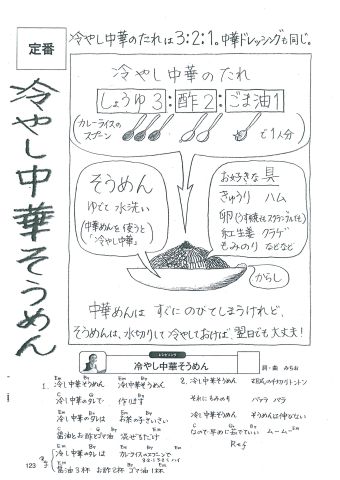 定番
冷やし中華のたれは3:2:1。中華ドレッシングも同じ。
冷やし中華そうめん
冷やし中華のたれ
しょうゆ3:酢2:ごま油1
(カレーライスのスプーン で1人分)
そうめん
ゆでて 水洗い
(中華めんを使うと「冷やし中華」)
お好きな具
きゅうり ハム
卵(うす焼orスクランブルor)
紅生姜 クラゲ
もみのり などなど
からし
中華めんは すぐにのびてしまうけれど、
そうめんは、水切りして冷やしておけば、翌日でも大丈夫!
レシピソング
冷やし中華そうめん
詞・曲 みちお
Em Bm Em Bm
1. 冷やし中華そうめん 冷やし中華そうめん
冷やし中華のタレで 作ります
冷やし中華のタレは お茶の子さいさい
醤油とお酢とゴマ油 混ぜるだけ
冷やし中華のタレは カレーのスプーンで
醤油3杯 お酢2杯 ゴマ油1杯
2. 冷やし中華そうめん
それにもみのり パラパラ
冷やし中華そうめん そうめんは伸びない
なので早めに茹でていい ムームー
Ref
123